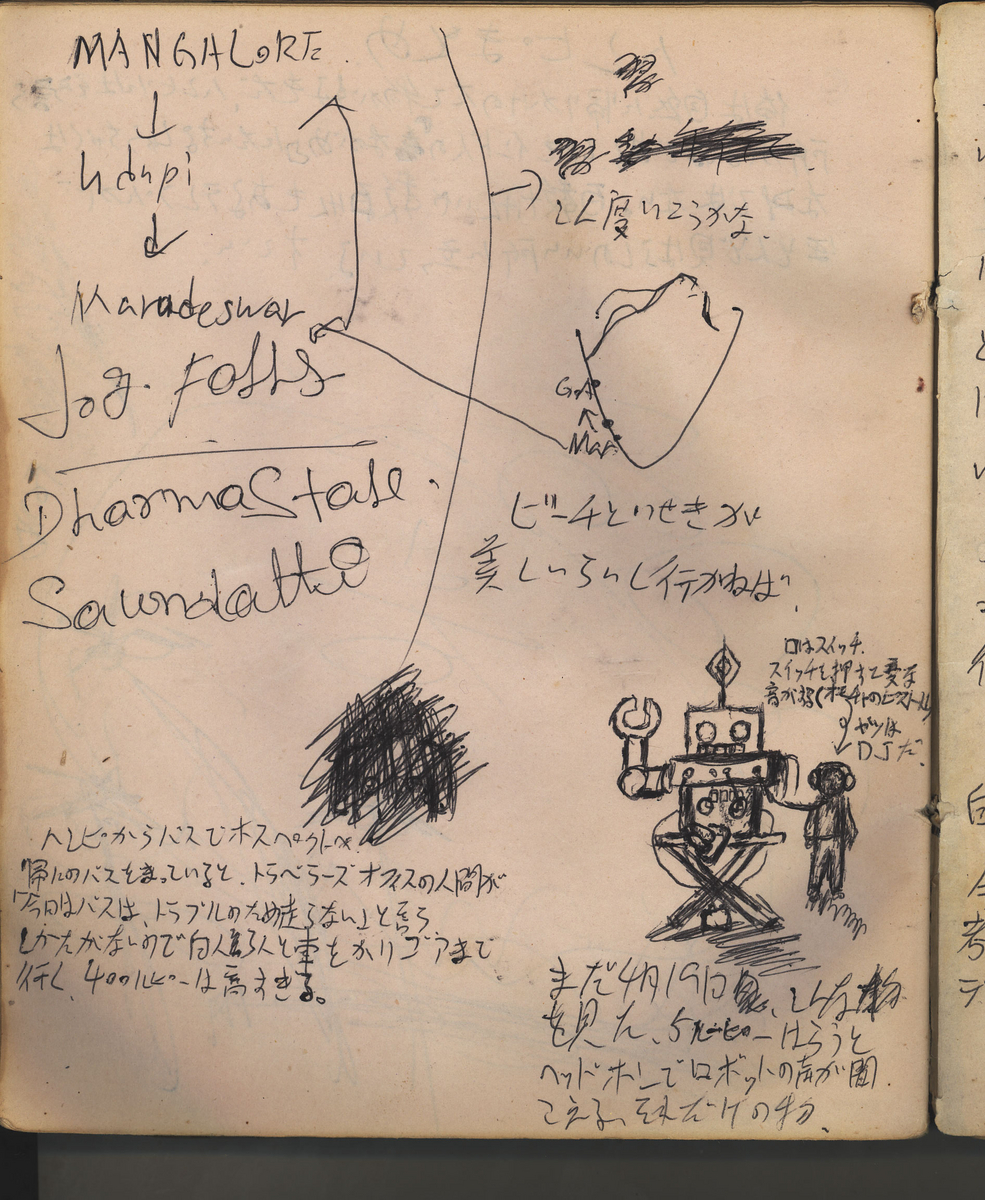 MANGALORE
Udupi
Marudeswar
Jog. Falls
DharmaStale.
Saundatti
こん度いこうかな.
GOA
Man
ビーチといせきが
美しいらしい行かねば.
口はスイッチ.
スイッチを押すと変な
音が鳴る(オモチャのピストル)
ヤツは
DJだ.
ハンピからバスでホスペットへ.
帰りのバスをまっていると、トラベラーズオフィスの人間が
「今日はバスは、トラブルのため走らない」と言う
しかたがないので白人3人と車をかりゴアまで
行く、400ルピーは高すぎる。
まだ4月19日、こんな物
を見た、5ルーピーはらうと
ヘッドホンでロボットの声が聞
こえる、それだけの物.